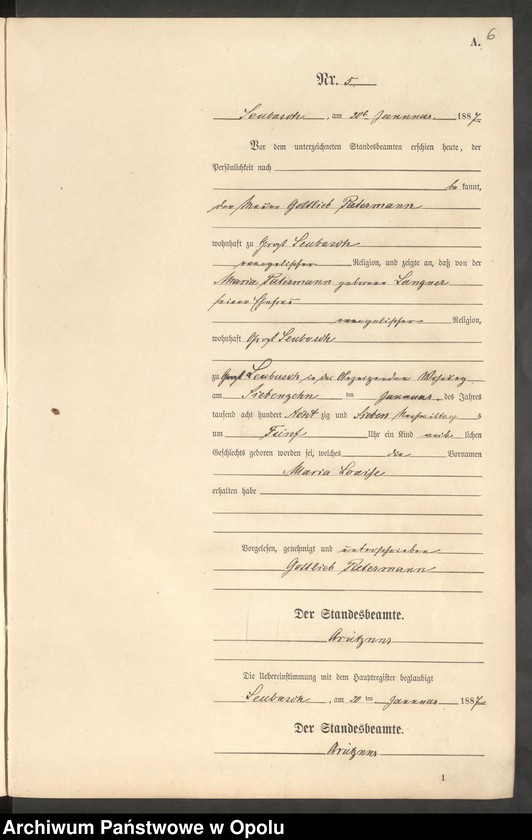 6
A.
Nr. 5
Leubusch, am 20t Januar 1887
Vor dem unterzeichneten Standesbeamten erschien heute, der
Persönlichkeit nach
be kannt,
der Gottlieb Petermann
wohnhaft zu Groß Leubusch
evangelischer Religion, und zeigte an, daß von der
Maria Petermann geborene Langner
seiner Ehefrau
evangelischer Religion,
wohnhaft Groß Leubusch
zu Groß Leubusch in des Anzeigenden Wohnung
am Siebenzehn ten Januar des Jahres
tausend acht hundert Acht zig und Sieben Nachmittag s
um Fünf Uhr ein Kind weib lichen
Geschlechts geboren worden sei, welches die Vornamen
Maria Louise
erhalten habe
Vorgelesen, genehmigt und unterschrieben
Gottlieb Petermann
Der Standesbeamte.
Die Uebereinstimmung mit dem Hauptregister beglaubigt
Leubusch, am 20 ten Januar 1887
Der Standesbeamte.
1
Archiwum Państwowe w Opolu